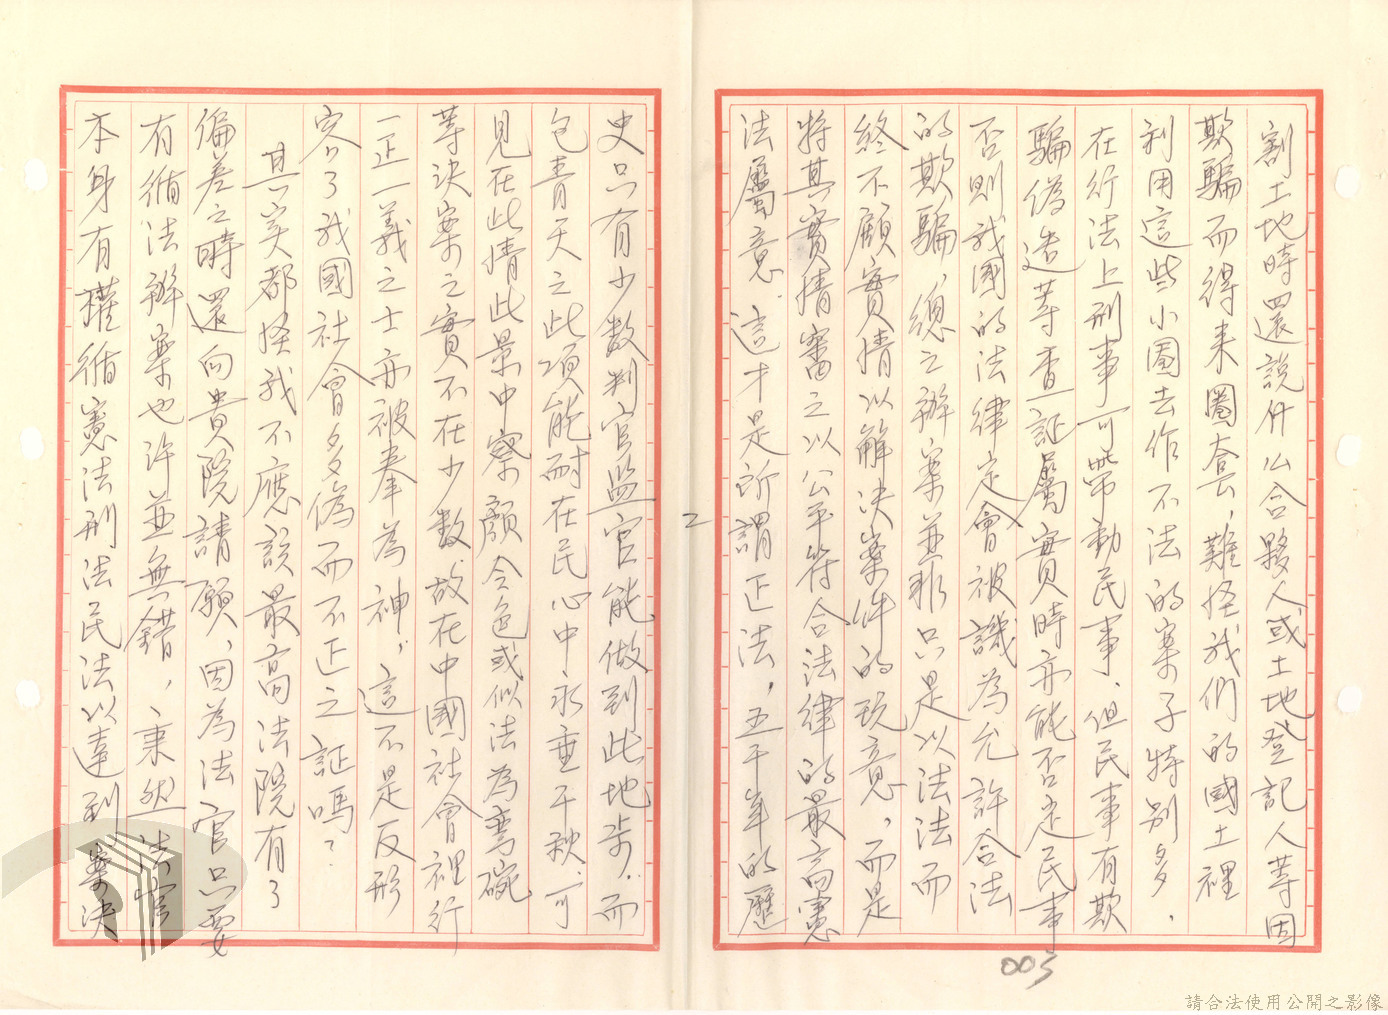 割土地時還說什么合夥人或土地登記人等因
欺騙而得來圈套，難怪我們的國土裡
利用這些小圈去作不法的案子特別多，
在行法上刑事可帶動民事，但民事有欺
騙偽造等查証屬實時亦能否定民事
否則我國的法律定會被譏為允許合法
的欺騙，總之辦案並非只是以法法而
終不顧實情以解決案件的玩意，而是
將其實情審之以公平符合法律的最高憲
法屬意．這才是所謂正法，五千年的歷
史只有少數判官監官能做到此地步．而
包青天之此項能耐在民心中永垂千秋．可
見在此情此景中察顏令色或似法為彎碗
等決案之實不在少數．故在中國社會裡行
一正一義之士亦被奉為神，這不是反形
容了我國社會多偽而不正之証嗎？
其实都怪我不應該最高法院有了
偏差之時還向貴院請願，因為法官只要
有循法辦案也許並無錯，秉然法官
本身有權循憲法刑法民法以達到案決
2
005
請合法使用公開之影像